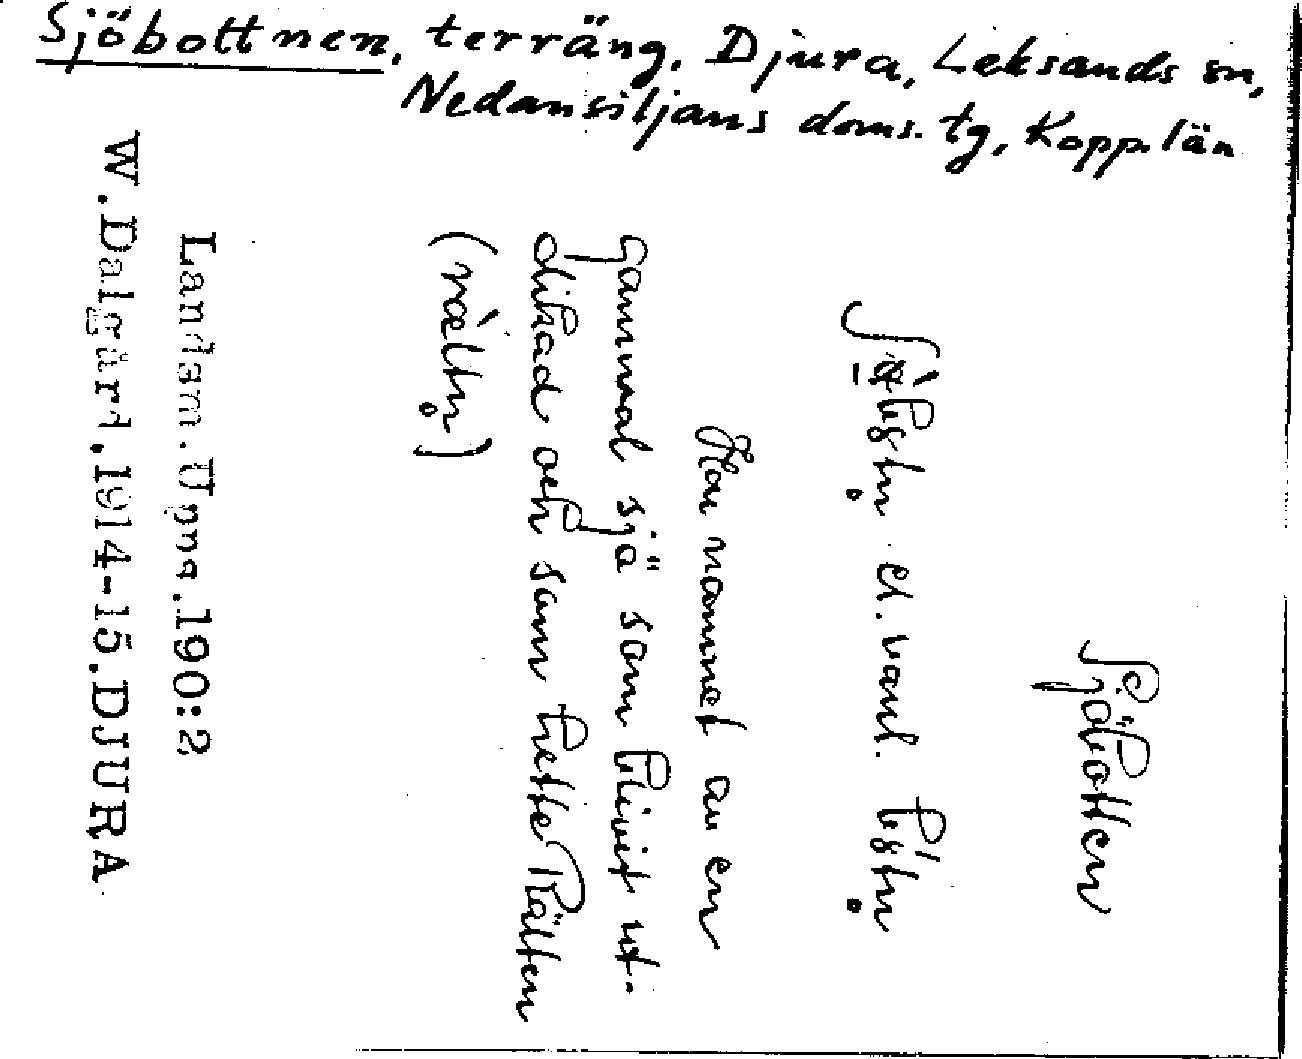 Sjöbottnen, terräng, Djura, Leksands sn,
Nedansiljans doms. tg, Kopp. län
Sjöbotten
el. vanl.
Har namnet av en
gammal sjö som blivit ut-
dikad och som hette Rälten
(ræltn̥)
Landsm. Upps. 190:2
W. Dalgård, 1914-15. DJURA